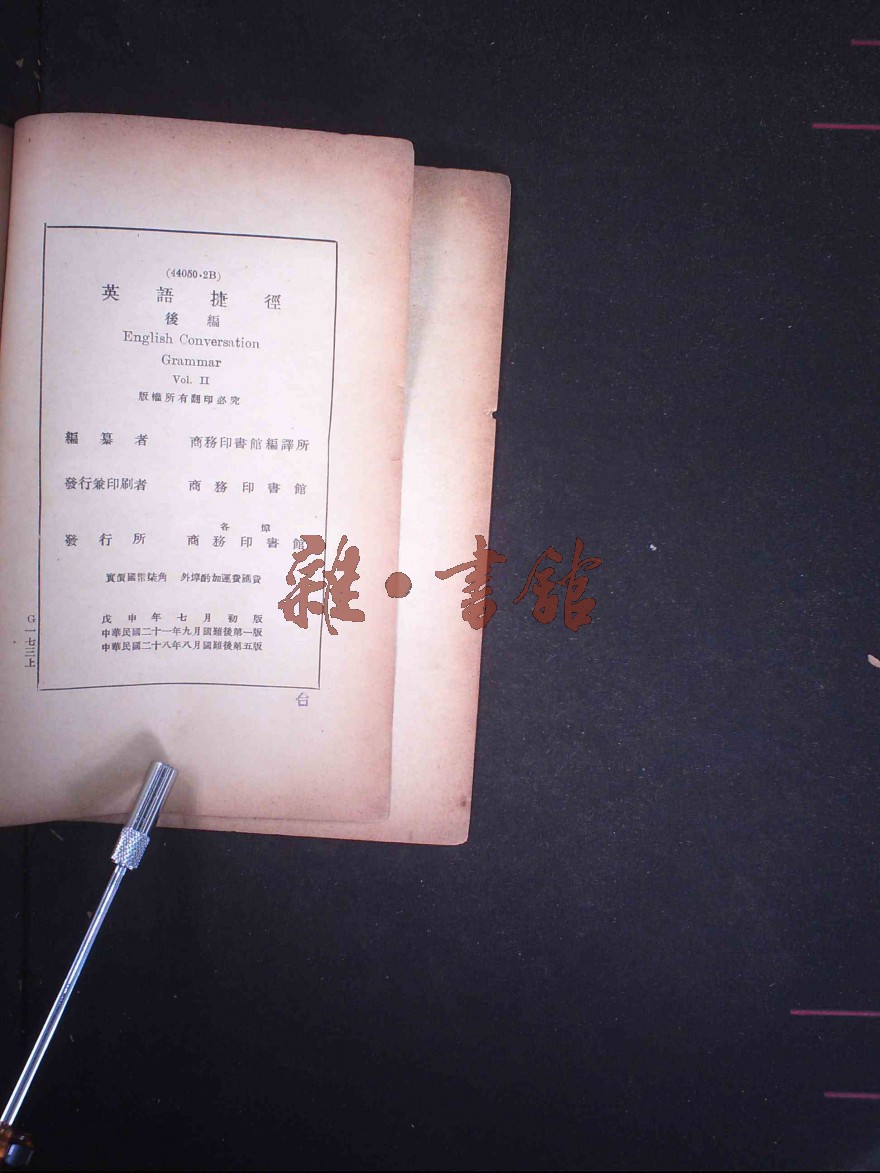 (44050·2B)
英語捷徑
後編
English Conversation
Grammar
Vol. II
版權所有翻印必究
編纂者 商務印書館編譯所
發行兼印刷者 商務印書館
各埠
發行所 商務印書館
實價國幣柒角 外埠酌加運費匯費
戊申年七月初版
中華民國二十一年九月國難後第一版
中華民國二十八年八月國難後第五版
G一七三上
台
雜·書館